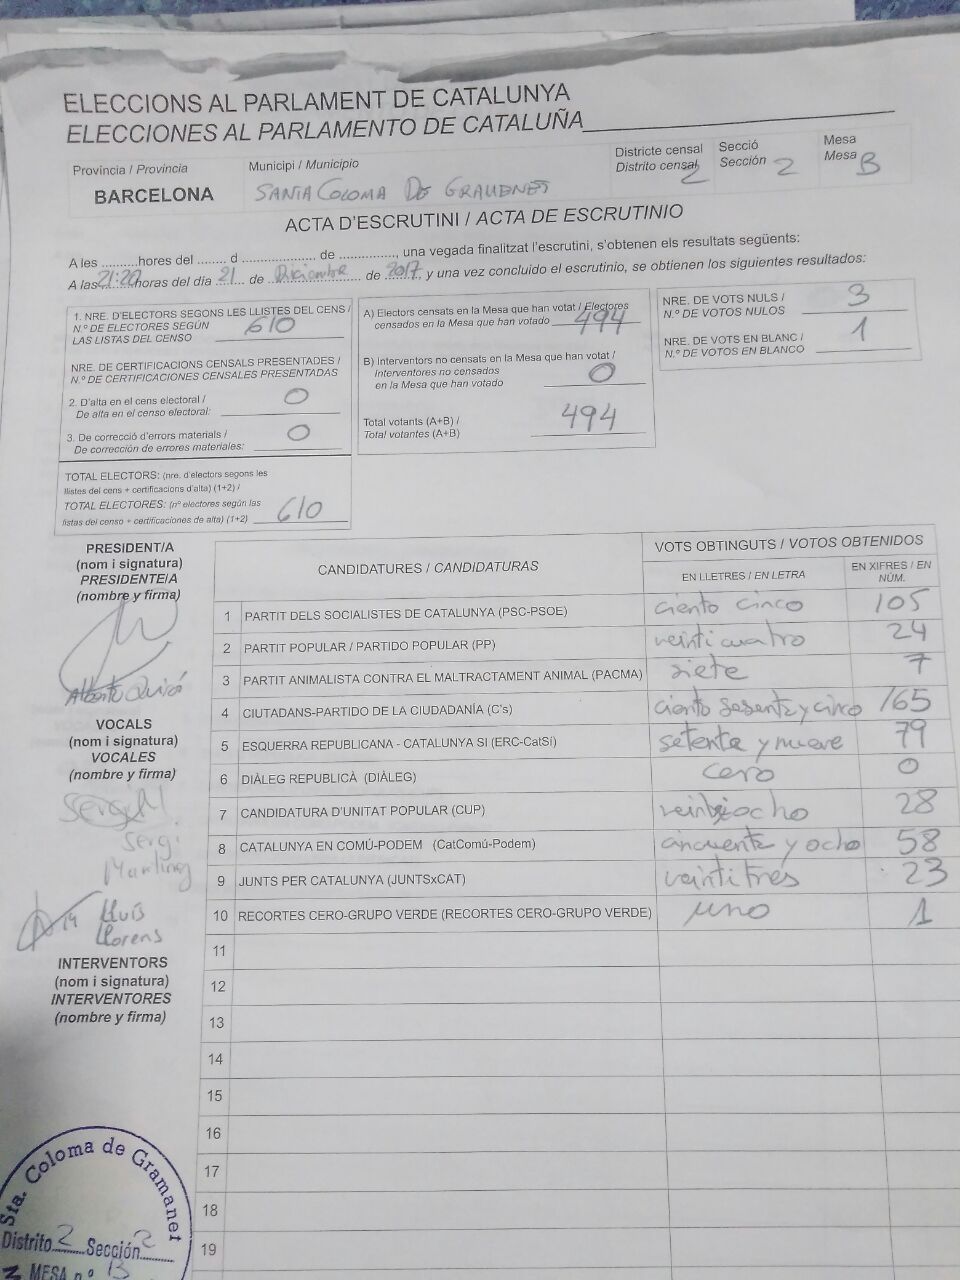 ELECCIONS AL PARLAMENT DE CATALUNYA
ELECCIONES AL PARLAMENTO DE CATALUÑA
Provincia / Provincia
BARCELONA
Municipi / Municipio
SANTA COLOMA DE GRAMENET
Districte censal
Distrito censal 2
Secció
Sección 2
Mesa
Mesa B
ACTA D'ESCRUTINI / ACTA DE ESCRUTINIO
A les ..........hores del ........ d .................... de ..............., una vegada finalitzat l'escrutini, s'obtenen els resultats següents:
A las 21:20 horas del día 21 de Diciembre de 2017 y una vez concluido el escrutinio, se obtienen los siguientes resultados:
1. NRE. D'ELECTORS SEGONS LES LLISTES DEL CENS /
N.º DE ELECTORES SEGÚN
LAS LISTAS DEL CENSO 610
NRE. DE CERTIFICACIONS CENSALS PRESENTADES /
N.º DE CERTIFICACIONES CENSALES PRESENTADAS
2. D'alta en el cens electoral /
De alta en el censo electoral: 0
3. De correcció d'errors materials /
De corrección de errores materiales: 0
TOTAL ELECTORS: (nre. d'electors segons les
llistes del cens + certificacions d'alta) (1+2) /
TOTAL ELECTORES: (nº electores según las
listas del censo + certificaciones de alta) (1+2) 610
A) Electors censats en la Mesa que han votat / Electores
censados en la Mesa que han votado 494
B) Interventors no censats en la Mesa que han votat /
Interventores no censados
en la Mesa que han votado 0
Total votants (A+B) /
Total votantes (A+B) 494
NRE. DE VOTS NULS /
N.º DE VOTOS NULOS 3
NRE. DE VOTS EN BLANC /
N.º DE VOTOS EN BLANCO 1
PRESIDENT/A
(nom i signatura)
PRESIDENTE/A
(nombre y firma)
Alberto
VOCALS
(nom i signatura)
VOCALES
(nombre y firma)
Sergi M
Sergi
Martínez
Lluís
Llorens
INTERVENTORS
(nom i signatura)
INTERVENTORES
(nombre y firma)
CANDIDATURES / CANDIDATURAS
VOTS OBTINGUTS / VOTOS OBTENIDOS
EN LLETRES / EN LETRA
EN XIFRES / EN
NÚM.
1 PARTIT DELS SOCIALISTES DE CATALUNYA (PSC-PSOE) ciento cinco 105
2 PARTIT POPULAR / PARTIDO POPULAR (PP) veinticuatro 24
3 PARTIT ANIMALISTA CONTRA EL MALTRACTAMENT ANIMAL (PACMA) siete 7
4 CIUTADANS-PARTIDO DE LA CIUDADANÍA (C's) ciento sesenta y cinco 165
5 ESQUERRA REPUBLICANA - CATALUNYA SI (ERC-CatSí) setenta y nueve 79
6 DIÀLEG REPUBLICÀ (DIÀLEG) cero 0
7 CANDIDATURA D'UNITAT POPULAR (CUP) veintiocho 28
8 CATALUNYA EN COMÚ-PODEM (CatComú-Podem) cincuenta y ocho 58
9 JUNTS PER CATALUNYA (JUNTSxCAT) veintitres 23
10 RECORTES CERO-GRUPO VERDE (RECORTES CERO-GRUPO VERDE) uno 1
11
12
13
14
15
16
17
18
19
Sta. Coloma de Gramanet
Distrito 2 Sección 2
MESA n.º B